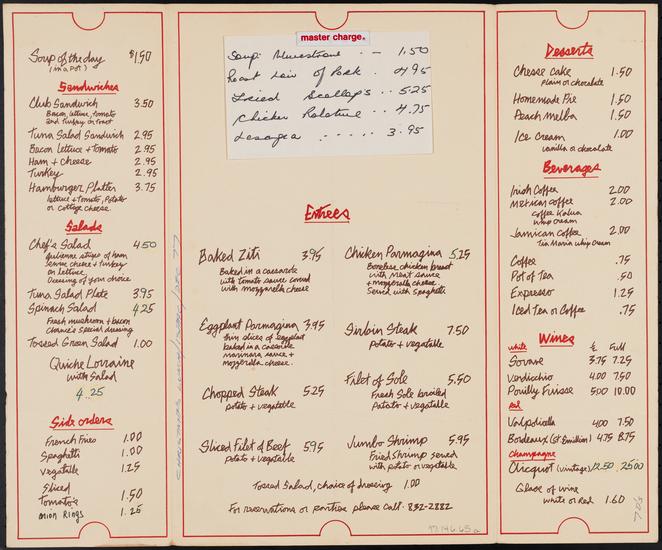 Soup of the day $1.50
(in a pot)
Sandwiches
Club Sandwich 3.50
Bacon, lettuce, tomato
and Turkey on toast
Tuna Salad Sandwich 2.95
Bacon lettuce + tomato 2.95
Ham + Cheese 2.95
Turkey 2.95
Hamburger Platter 3.75
lettuce + tomato, Potato
or Cottage cheese
Salads
Chef's Salad 4.50
julienne strips of ham
swiss cheese + turkey
on lettuce
Dressing of your choice
Tuna Salad Plate 3.95
Spinach Salad 4.25
Fresh mushroom + bacon
special dressing
Tossed Green Salad 1.00
Quiche Lorraine
with Salad
4.25
Side orders
French Fries 1.00
Spaghetti 1.00
Vegatable 1.25
Sliced
Tomato's 1.50
Onion Rings 1.25
master charge
Soup: Minestrone - 1.50
Roast Loin of Pork . 4.95
Fried Scallop's .. 5.25
Chicken .. 4.75
3.95
Entrees
Baked Ziti 3.95
Baked in a casserole
with tomato sauce covered
with mozzarella cheese
Eggplant Parmagina 3.95
thin slices of eggplant
baked in a casserole
marinara sauce +
mozzerella cheese.
Chopped Steak 5.25
potato + vegatable
Sliced Filet of Beef 5.95
Potato + vegatable
Chicken Parmagina 5.25
Boneless chicken breast
with meat sauce
+ mozzerella cheese
Served with Spaghetti
Sirloin Steak 7.50
potato + vegetable
Filet of Sole 5.50
Fresh Sole broiled
Potato + vegatable
Jumbo Shrimp 5.95
Fried Shrimp served
with potato or vegatable
Tossed Salad, choice of dressing 1.00
For reservations or parties please call - 832-2882
Desserts
Cheese Cake 1.50
Plain or chocolate
Homemade Pie 1.50
Peach Melba 1.50
Ice Cream 1.00
vanilla or chocolate
Beverages
Irish Coffee 2.00
Mexican coffee 2.00
coffee Kalua
whip cream
Jamican Coffee 2.00
Tia Maria whip cream
Coffee .75
Pot of Tea .50
Expresso 1.25
Iced Tea or Coffee .75
Wines
white ½ Full
Sovave 3.75 7.25
Verdicchio 4.00 7.50
Pouilly Fuisse 5.00 10.00
Red
Valpolicella 4.00 7.50
Bordeaux (St. Emillion) 4.75 8.75
Champagne
Clicquot (vintage) 12.50 25.00
Glass of wine
white or Red 1.60